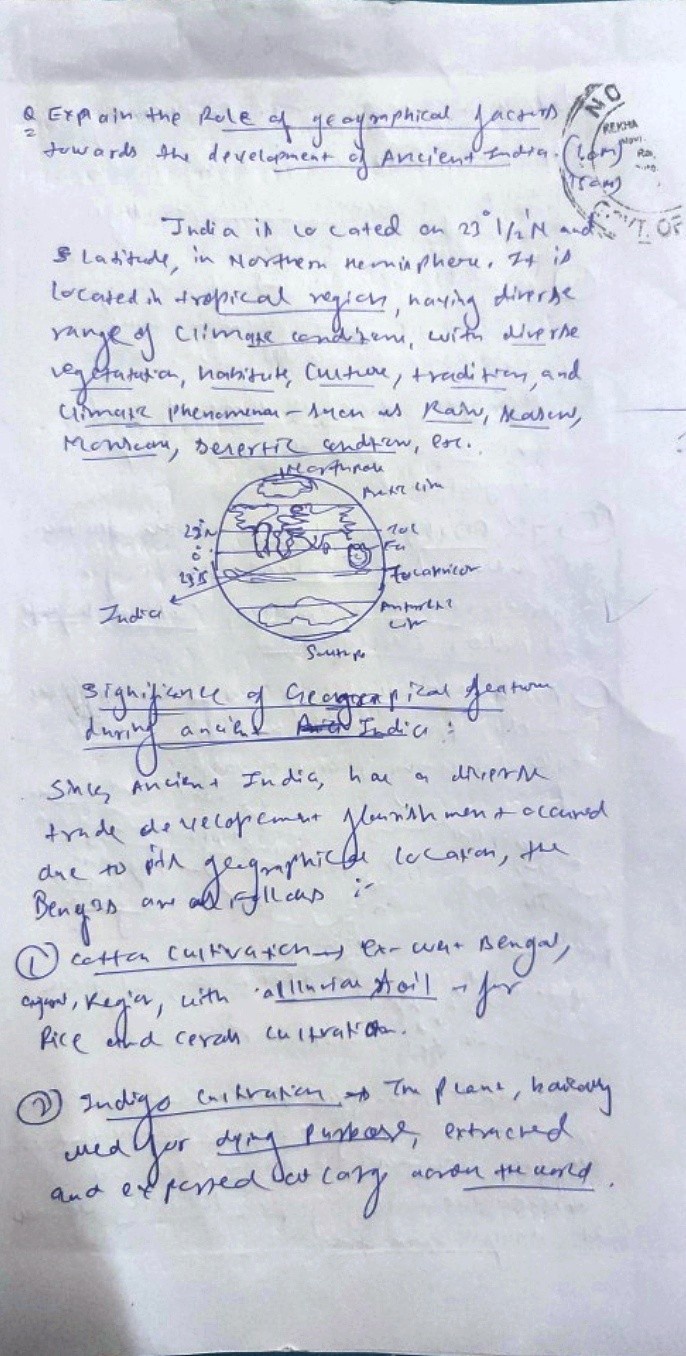 Q Explain the Role of geographical factors
towards the development of Ancient India. (10m)
(15am)
NO
REKHA
GOVT. OF
India is located on 23° 1/2 N and
S Latitude, in Northern Hemisphere. It is
located in tropical region, having diverse
range of climate conditions, with diverse
vegetatation, habitute, Culture, tradition, and
Climate phenomenon - such as Rain, season,
Monsoon, desertic condition, etc.
Northpole
23°N
0°
23°S
India
Significance of Geographical feature
during ancient India :
Since, Ancient India, has a diverse
trade development flourishment occured
due to its geographical location, the
are as follows :-
① cotton cultivation → ex- west Bengal,
Region, with alluvial soil - for
Rice and cultivation.
② Indigo cultivation → The plant,
used for dying purpose, extracted
and at across the world.